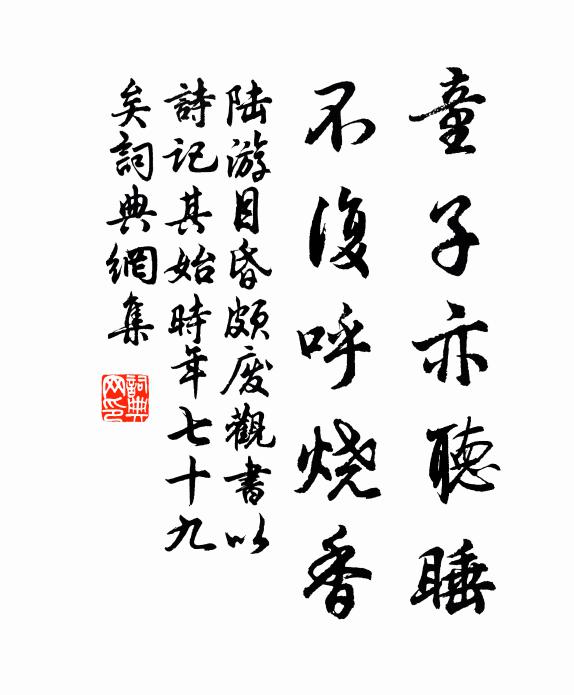 童子亦聽睡
不復呼燒香
陆游目昏頗废觀書以
詩記其始時年七十九
矣詞典網集
詞典
网印